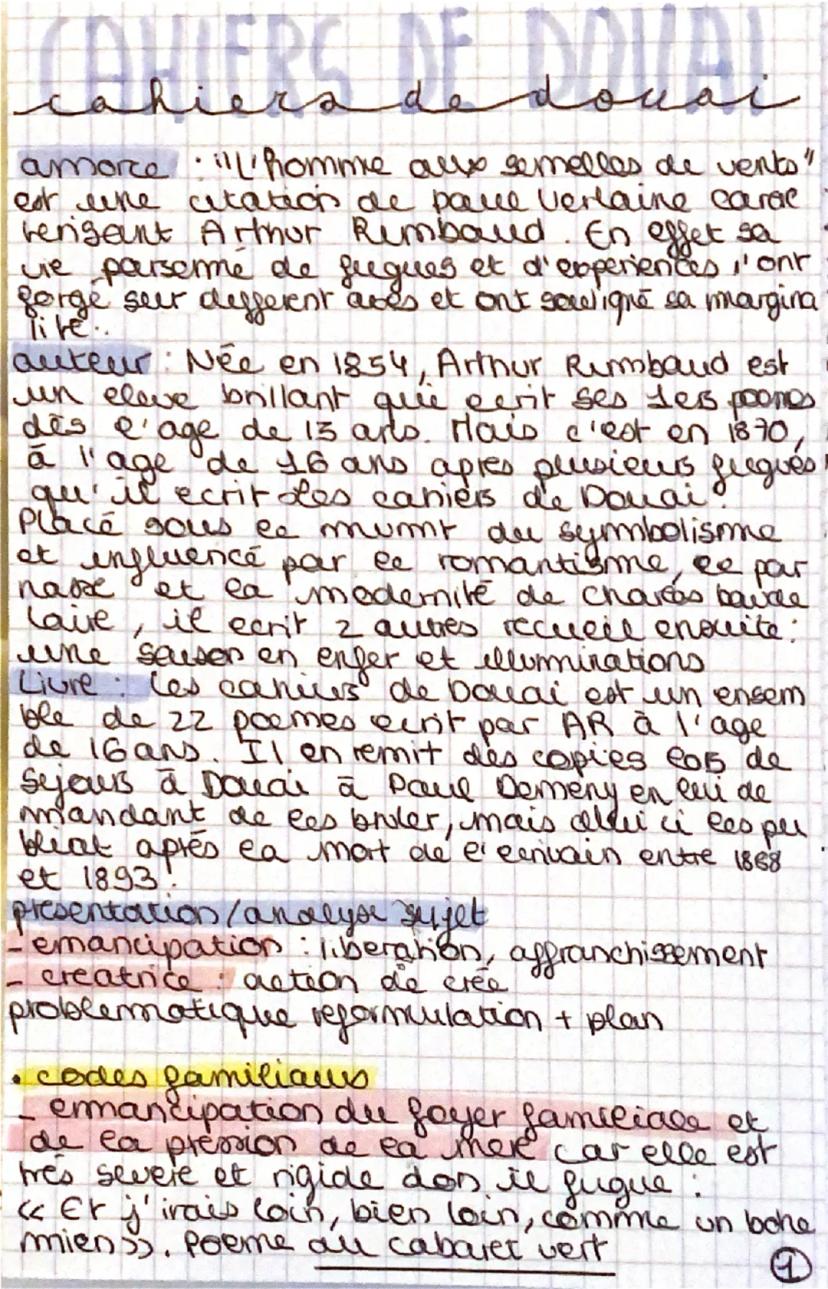 CAHIERS DE DOUAI
cahiers de douai
amorce : "L'homme aux semelles de vents"
est une citation de paul Verlaine carac
terisant Arthur Rimbaud. En effet sa
vie parsemé de fugues et d'experiences l'ont
forgé sur different axes et ont souligné sa margina
lité..
auteur : Née en 1854, Arthur Rimbaud est
un eleve brillant qui ecrit ses 1ers poemes
dès l'age de 15 ans. Mais c'est en 1870,
à l'age de 16 ans apres plusieurs fugues
qu'il ecrit les cahiers de Douai.
Placé sous le mvmt du symbolisme
et influencé par le romantisme, le par
nasse et la modernité de charles baude
laire, il ecrit 2 autres recueil ensuite :
une saison en enfer et illuminations
Livre : Les cahiers de Douai est un ensem
ble de 22 poemes ecrit par AR à l'age
de 16 ans. Il en remit des copies lors de
sejours à Douai à Paul Demeny en lui de
mandant de les bruler, mais celui ci les pu
bliat après la mort de l'ecrivain entre 1868
et 1893.
presentation/analyse sujet
- emancipation : liberation, affranchissement
- creatrice : action de crée
problematique reformulation + plan
• codes familiaux
- emancipation du foyer familiale et
de la pression de la mere car elle est
très severe et rigide don il fugue :
« Et j'irais loin, bien loin, comme un bohe
mien ». Poeme au cabaret vert
1